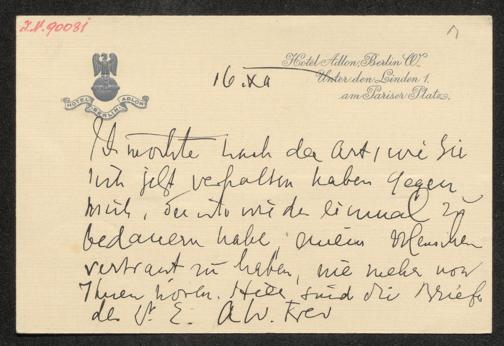 I.N. 90081
Hotel Adlon, Berlin W.
Unter den Linden 1.
am Pariser Platz.
HOTEL ADLON
BERLIN
16. XII
Ich möchte nach der Art, wie Sie
sich jetzt verhalten haben gegen
mich, wieder einmal zu
bedauern habe, einem Menschen
vertraut zu haben, nie mehr von
Ihnen hören. Hier sind die Briefe
des